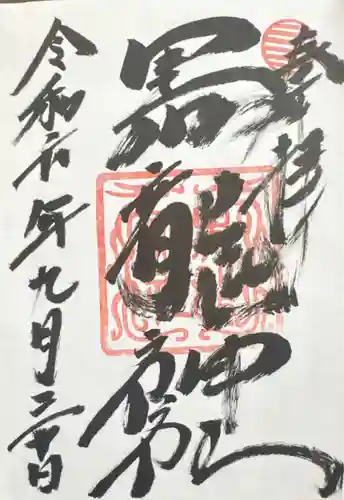 奉拝
黒龍神社
令和元年九月三十日